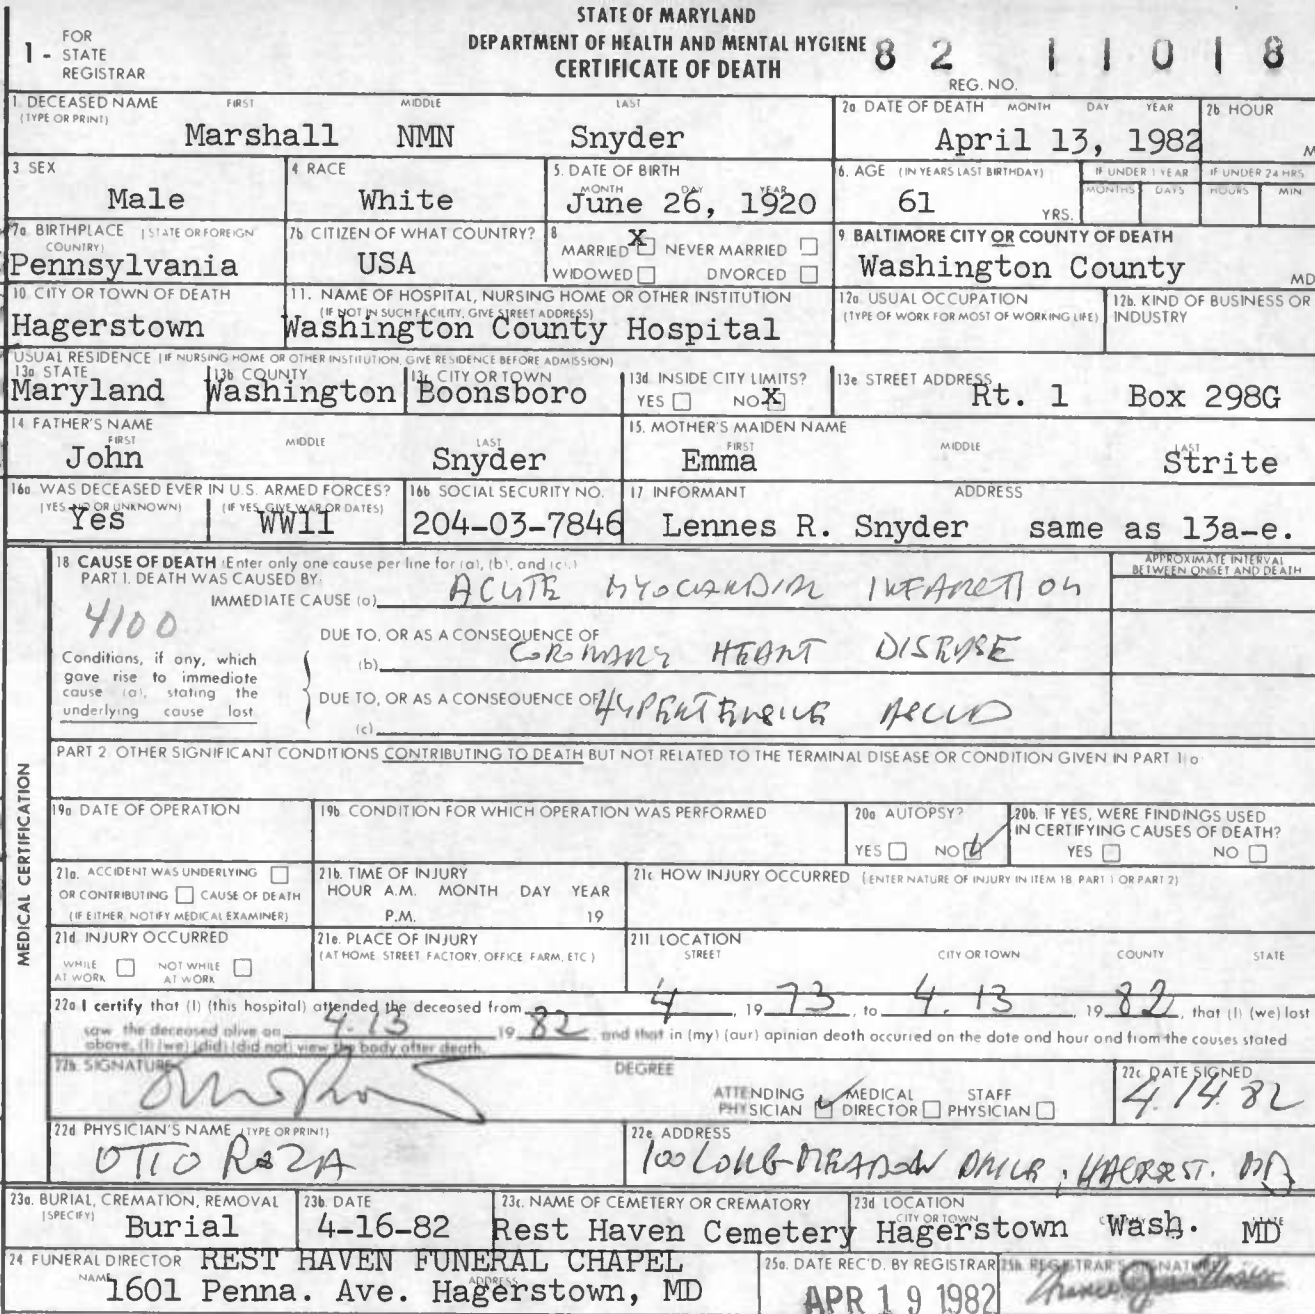 STATE OF MARYLAND
DEPARTMENT OF HEALTH AND MENTAL HYGIENE
CERTIFICATE OF DEATH
1 - FOR STATE REGISTRAR
82 11018
REG. NO.
1. DECEASED NAME (TYPE OR PRINT) FIRST MIDDLE LAST
Marshall NMN Snyder
2a DATE OF DEATH MONTH DAY YEAR
April 13, 1982
2b HOUR
M
3 SEX
Male
4 RACE
White
5. DATE OF BIRTH MONTH DAY YEAR
June 26, 1920
6. AGE (IN YEARS LAST BIRTHDAY)
61 YRS.
IF UNDER 1 YEAR MONTHS DAYS
IF UNDER 24 HRS HOURS MIN.
7a. BIRTHPLACE (STATE OR FOREIGN COUNTRY)
Pennsylvania
7b CITIZEN OF WHAT COUNTRY?
USA
8
MARRIED X NEVER MARRIED
WIDOWED DIVORCED
9 BALTIMORE CITY OR COUNTY OF DEATH
Washington County MD
10 CITY OR TOWN OF DEATH
Hagerstown
11. NAME OF HOSPITAL, NURSING HOME OR OTHER INSTITUTION
(IF NOT IN SUCH FACILITY, GIVE STREET ADDRESS)
Washington County Hospital
12a. USUAL OCCUPATION
(TYPE OF WORK FOR MOST OF WORKING LIFE)
12b. KIND OF BUSINESS OR INDUSTRY
USUAL RESIDENCE (IF NURSING HOME OR OTHER INSTITUTION, GIVE RESIDENCE BEFORE ADMISSION)
13a STATE
Maryland
13b COUNTY
Washington
13c CITY OR TOWN
Boonsboro
13d INSIDE CITY LIMITS?
YES NO X
13e STREET ADDRESS
Rt. 1 Box 298G
14 FATHER'S NAME FIRST MIDDLE LAST
John Snyder
15. MOTHER'S MAIDEN NAME FIRST MIDDLE LAST
Emma Strite
16a WAS DECEASED EVER IN U.S. ARMED FORCES?
(YES NO OR UNKNOWN) (IF YES, GIVE WAR OR DATES)
Yes WW11
16b SOCIAL SECURITY NO.
204-03-7846
17 INFORMANT ADDRESS
Lennes R. Snyder same as 13a-e.
MEDICAL CERTIFICATION
18 CAUSE OF DEATH (Enter only one cause per line for (a), (b), and (c).)
PART I. DEATH WAS CAUSED BY:
IMMEDIATE CAUSE (a) ACUTE MYOCARDIAL INFARCTION
APPROXIMATE INTERVAL BETWEEN ONSET AND DEATH
4100
Conditions, if any, which
gave rise to immediate
cause (a), stating the
underlying cause last
DUE TO, OR AS A CONSEQUENCE OF
(b) CORONARY HEART DISEASE
DUE TO, OR AS A CONSEQUENCE OF
(c) HYPERTENSIVE ASCVD
PART 2 OTHER SIGNIFICANT CONDITIONS CONTRIBUTING TO DEATH BUT NOT RELATED TO THE TERMINAL DISEASE OR CONDITION GIVEN IN PART 1(a
19a DATE OF OPERATION
19b. CONDITION FOR WHICH OPERATION WAS PERFORMED
20a AUTOPSY?
YES NO
20b. IF YES, WERE FINDINGS USED
IN CERTIFYING CAUSES OF DEATH?
YES NO
21a. ACCIDENT WAS UNDERLYING
OR CONTRIBUTING CAUSE OF DEATH
(IF EITHER, NOTIFY MEDICAL EXAMINER)
21b. TIME OF INJURY
HOUR A.M. MONTH DAY YEAR
P.M. 19
21c HOW INJURY OCCURRED (ENTER NATURE OF INJURY IN ITEM 18 PART 1 OR PART 2)
21d. INJURY OCCURRED
WHILE AT WORK NOT WHILE AT WORK
21e. PLACE OF INJURY
(AT HOME, STREET, FACTORY, OFFICE, FARM, ETC.)
21f. LOCATION
STREET CITY OR TOWN COUNTY STATE
22a I certify that (I) (this hospital) attended the deceased from 4, 1973, to 4.13, 1982, that (I) (we) last
saw the deceased alive on 4.13 1982, and that in (my) (our) opinion death occurred on the date and hour and from the causes stated
above, (I) (we) (did) (did not) view the body after death.
22b. SIGNATURE DEGREE
ATTENDING PHYSICIAN MEDICAL DIRECTOR STAFF PHYSICIAN
22c DATE SIGNED
4.14.82
22d PHYSICIAN'S NAME (TYPE OR PRINT)
OTTO ROZA
22e ADDRESS
100 LONG-MEADOW DRIVE, HAGERST. MD
23a. BURIAL, CREMATION, REMOVAL (SPECIFY)
Burial
23b. DATE
4-16-82
23c. NAME OF CEMETERY OR CREMATORY
Rest Haven Cemetery
23d LOCATION CITY OR TOWN
Hagerstown Wash. MD
24 FUNERAL DIRECTOR REST HAVEN FUNERAL CHAPEL
NAME ADDRESS
1601 Penna. Ave. Hagerstown, MD
25a. DATE REC'D. BY REGISTRAR
APR 19 1982
25b. REGISTRAR'S SIGNATURE